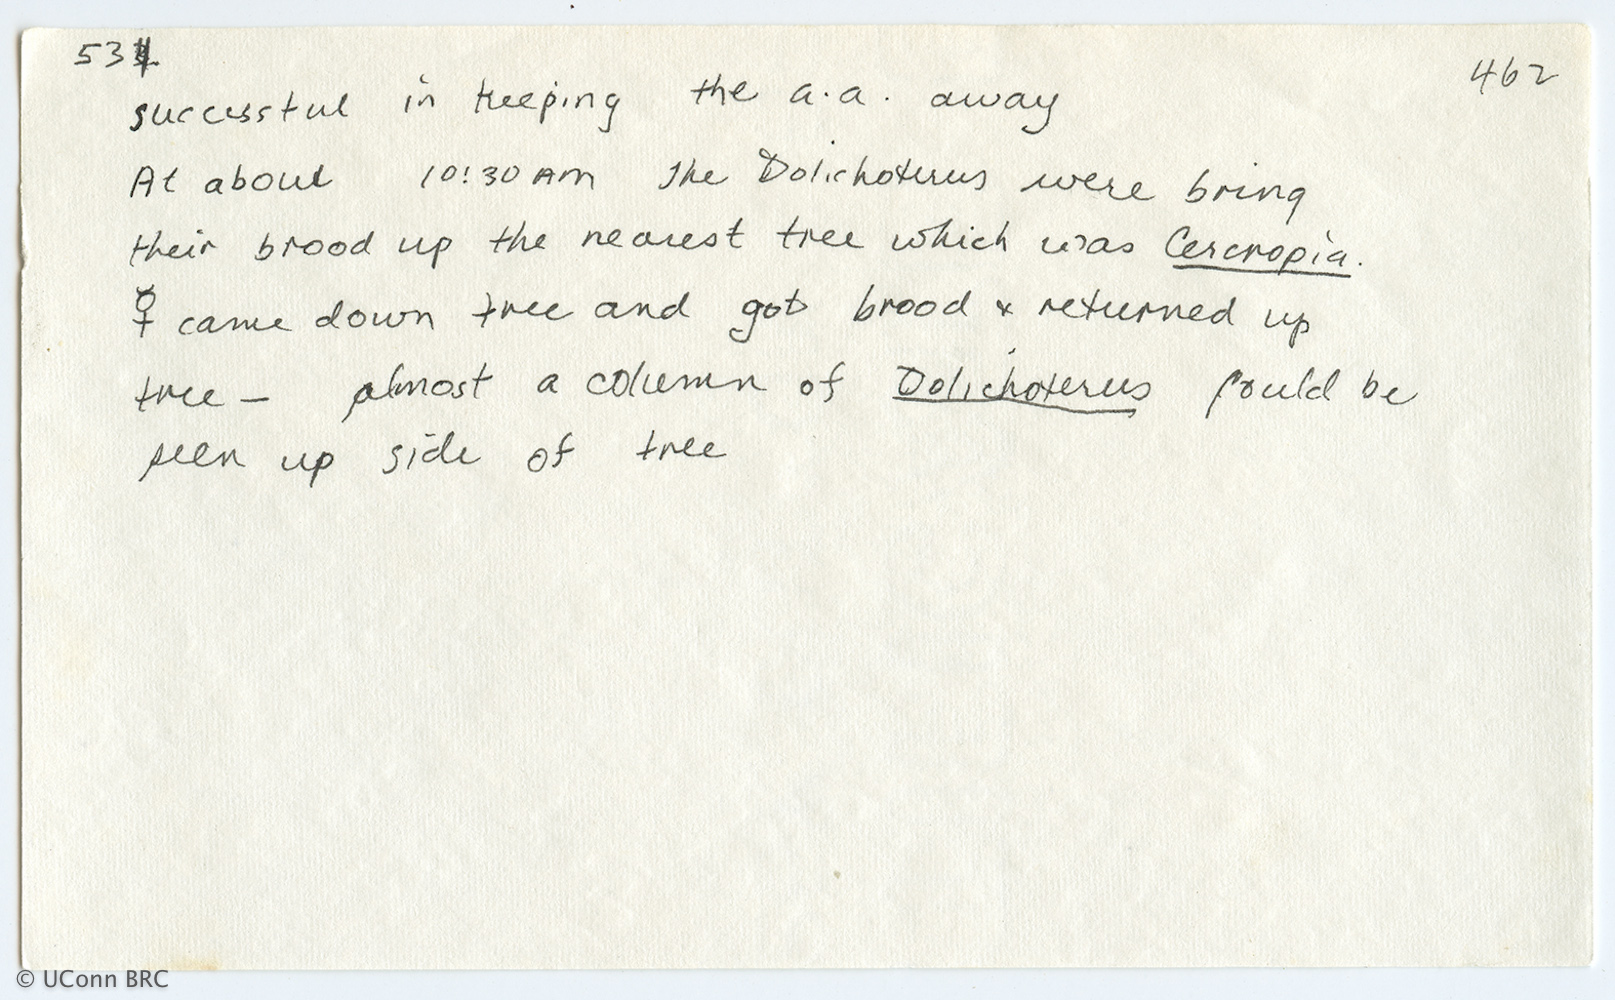 531
462
successful in keeping the a.a. away
At about 10:30 AM The Dolichoterus were bring
their brood up the nearest tree which was Cercropia.
☿ came down tree and got brood & returned up
tree — almost a column of Dolichoterus could be
seen up side of tree
© UConn BRC